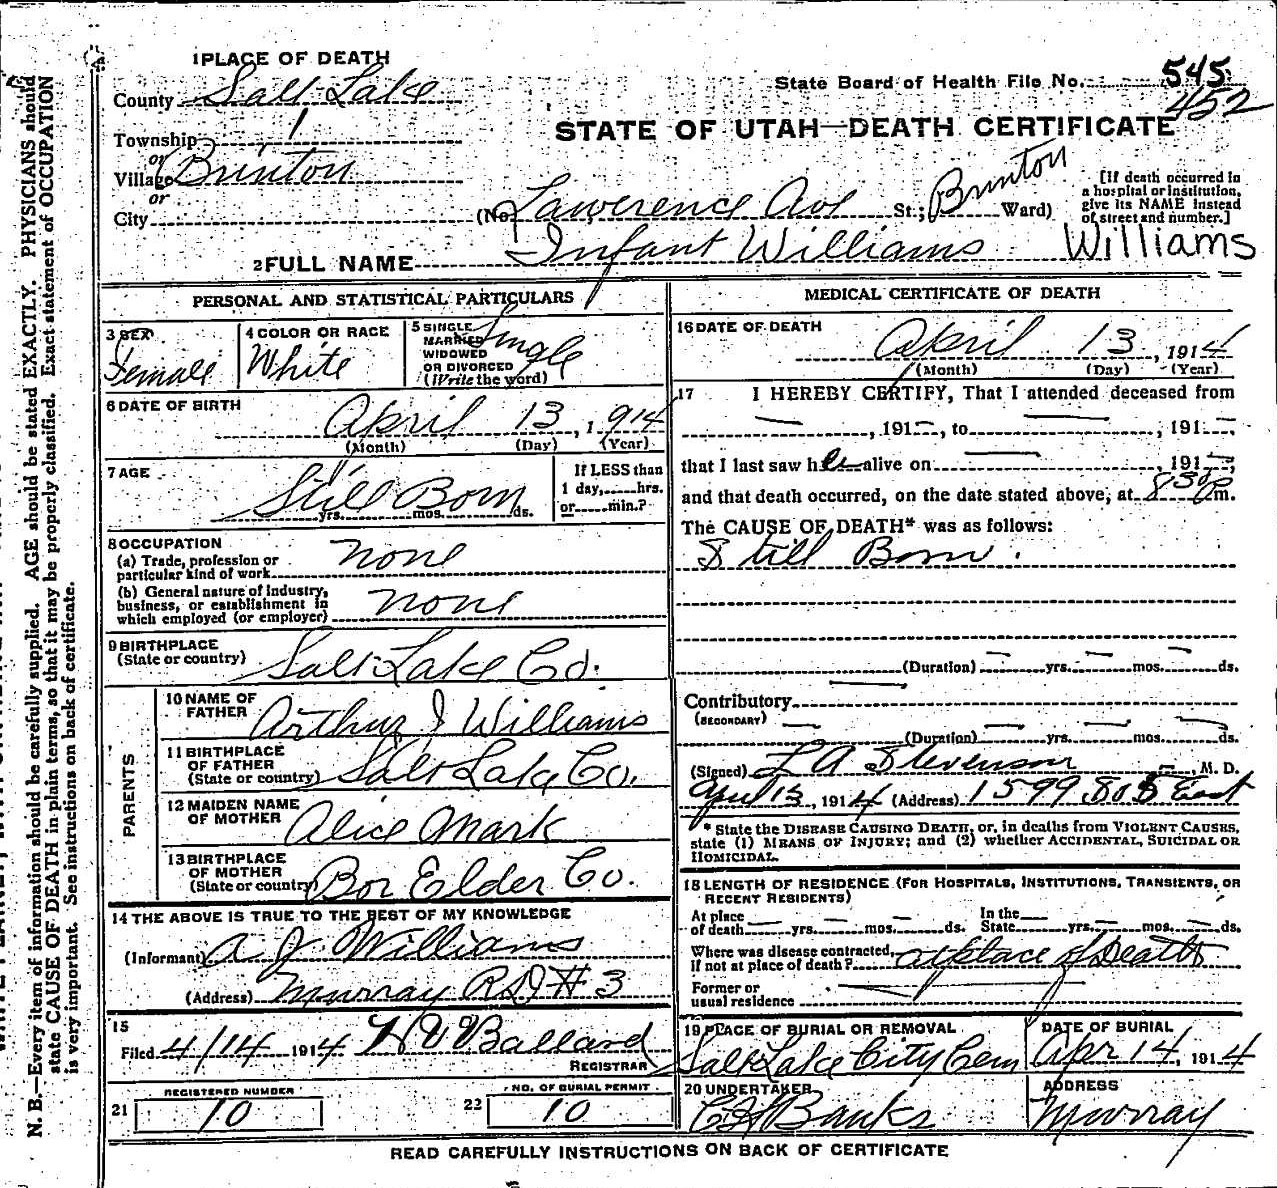 1 PLACE OF DEATH
County Salt Lake
Township 1
or
Village Brinton
or
City
State Board of Health File No. 545
452
STATE OF UTAH—DEATH CERTIFICATE
(No. Lawerence Ave St.; Brinton Ward)
[If death occurred in
a hospital or institution,
give its NAME instead
of street and number.]
2 FULL NAME Infant Williams Williams
PERSONAL AND STATISTICAL PARTICULARS
3 SEX
Female
4 COLOR OR RACE
White
5 SINGLE
MARRIED
WIDOWED
OR DIVORCED
(Write the word)
Single
6 DATE OF BIRTH
April 13, 1914
(Month) (Day) (Year)
7 AGE
Still Born
yrs. mos. ds.
If LESS than
1 day, hrs.
or min.?
8 OCCUPATION
(a) Trade, profession or
particular kind of work none
(b) General nature of Industry,
business, or establishment in
which employed (or employer) none
9 BIRTHPLACE
(State or country) Salt Lake Co.
PARENTS
10 NAME OF
FATHER Arthur J Williams
11 BIRTHPLACE
OF FATHER
(State or country) Salt Lake Co.
12 MAIDEN NAME
OF MOTHER Alice Mark
13 BIRTHPLACE
OF MOTHER
(State or country) Box Elder Co.
14 THE ABOVE IS TRUE TO THE BEST OF MY KNOWLEDGE
(Informant) A J Williams
(Address) Murray RD #3
15
Filed 4/14 1914 H V Ballard
REGISTRAR
REGISTERED NUMBER
21 10
NO. OF BURIAL PERMIT
22 10
MEDICAL CERTIFICATE OF DEATH
16 DATE OF DEATH
April 13, 1914
(Month) (Day) (Year)
17 I HEREBY CERTIFY, That I attended deceased from
—, 191—, to —, 191—,
that I last saw her alive on —, 191—,
and that death occurred, on the date stated above, at 830 P m.
The CAUSE OF DEATH* was as follows:
Still Born.
(Duration) — yrs. — mos. — ds.
Contributory —
(SECONDARY)
(Duration) — yrs. — mos. — ds.
(Signed) L A Stevenson, M. D.
Apr 13, 1914 (Address) 1599 So 5 East
* State the DISEASE CAUSING DEATH, or, in deaths from VIOLENT CAUSES,
state (1) MEANS OF INJURY; and (2) whether ACCIDENTAL, SUICIDAL OR
HOMICIDAL.
18 LENGTH OF RESIDENCE (FOR HOSPITALS, INSTITUTIONS, TRANSIENTS, OR
RECENT RESIDENTS)
At place
of death — yrs. — mos. — ds.
In the
State — yrs. — mos. — ds.
Where was disease contracted,
if not at place of death? at place of Death
Former or
usual residence
19 PLACE OF BURIAL OR REMOVAL
Salt Lake City Cem
DATE OF BURIAL
Apr 14, 1914
20 UNDERTAKER
Banks
ADDRESS
Murray
READ CAREFULLY INSTRUCTIONS ON BACK OF CERTIFICATE
N. B.—Every item of information should be carefully supplied. AGE should be stated EXACTLY. PHYSICIANS should
state CAUSE OF DEATH in plain terms, so that it may be properly classified. Exact statement of OCCUPATION
is very important. See instructions on back of certificate.